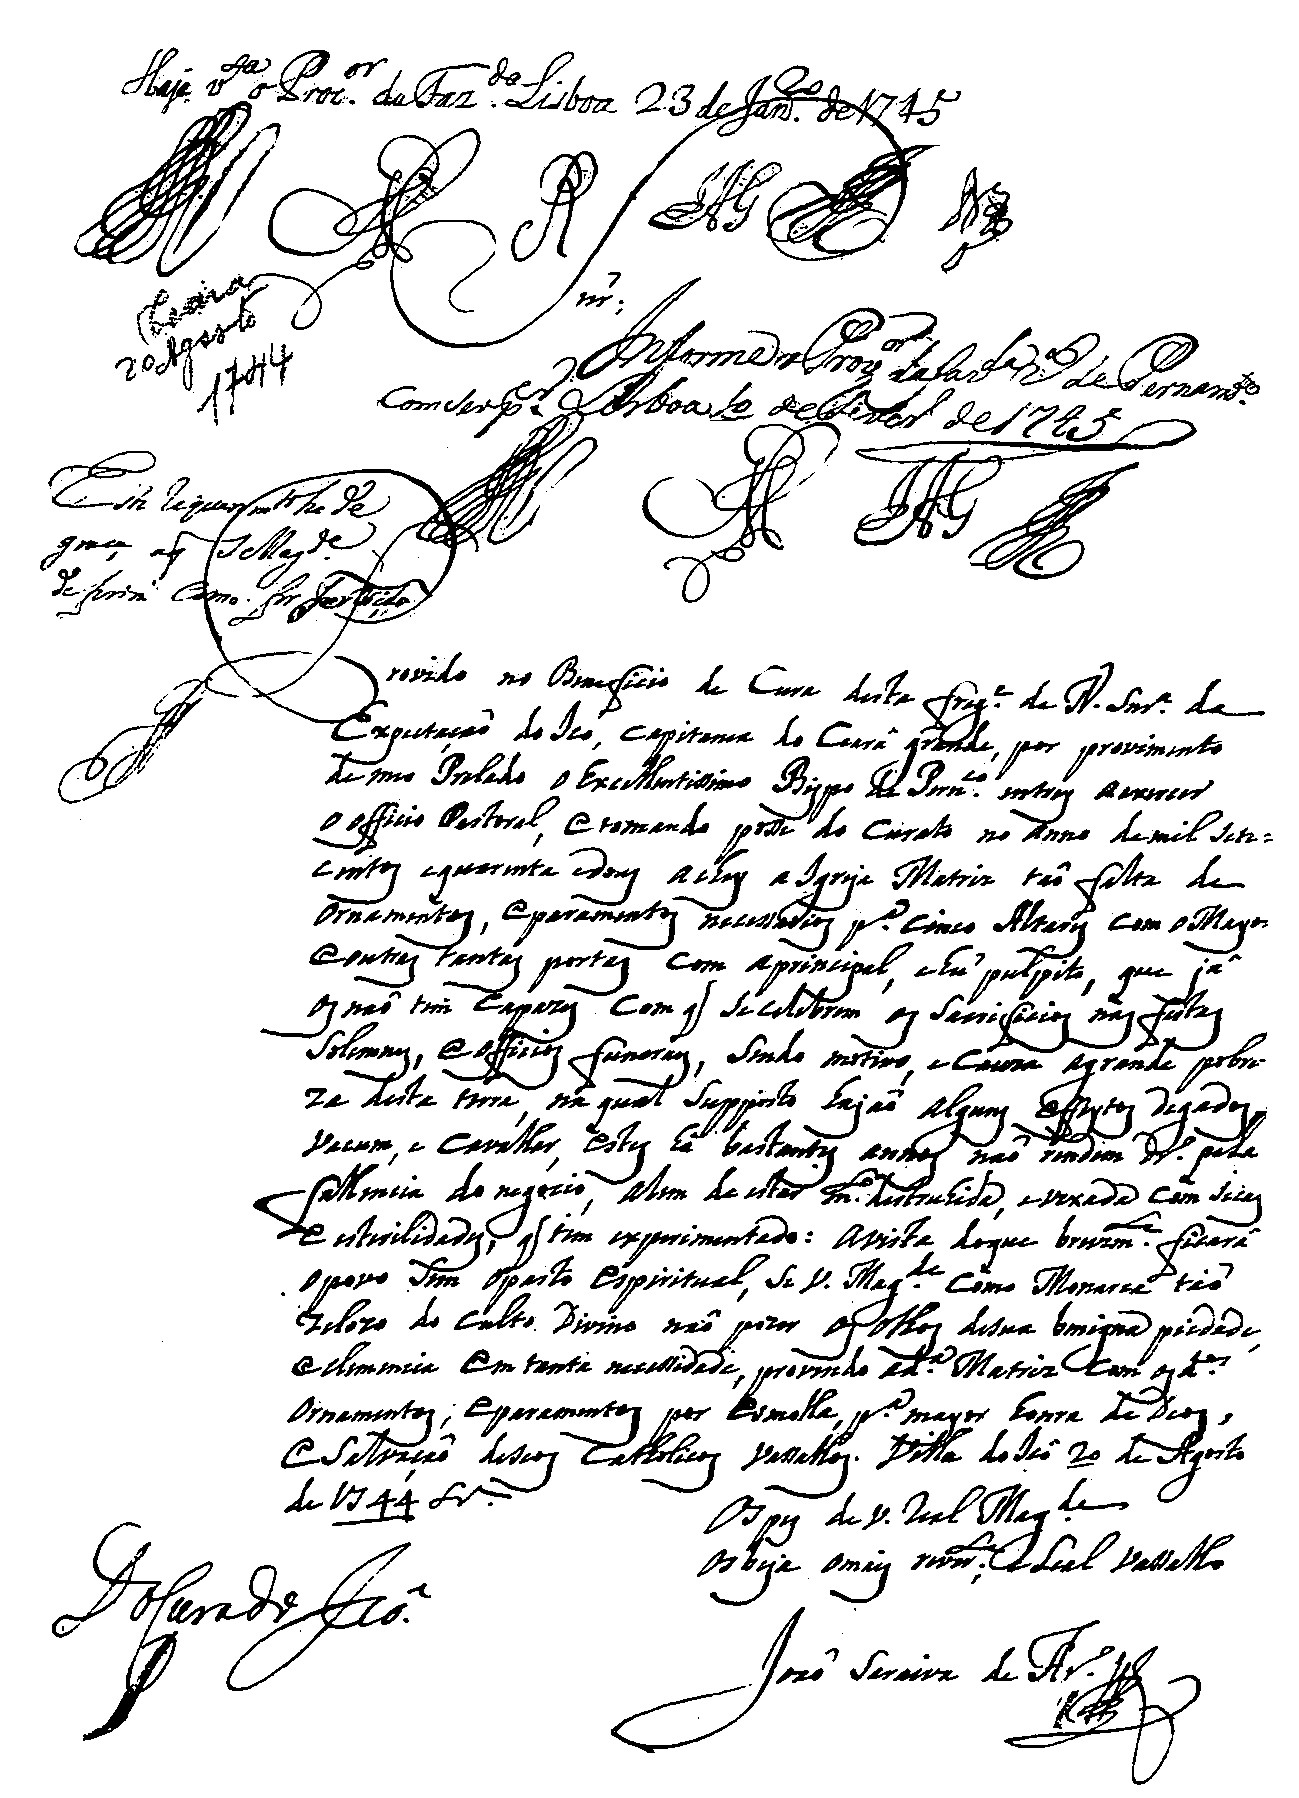 Haja v.ta o Proc.or da Faz.da Lisboa 23 de Jan.ro de 1745
Ceará
20 Agosto
1744
Snr̃;
Informe o Prov.or da Faz.da R.l de Pernam.co
Com seu p.er Lisboa 10 de Fever.o de 1745
Este requerim.to he de
graça, a q̃ S Mag.de
de ferirá como for servido
Provido no Beneficio de Cura desta freg.a de N. Snr.a da
Expectaçaõ do Icó, Capitania do Ceará grande, por provimento
de meu Prelado o Excellentissimo Bispo de Pern.co entrey a exercer
o officio Pastoral, e tomando posse do Curato no anno de mil sete=
centos e quarenta e dous achey a Igreja Matriz taõ falta de
Ornamentos, e paramentos necessarios p.a cinco Altares com o Mayor
e outras tantas portas com a principal, e hũ pulpito, que já
os naõ tem capazes com q̃ se celebrem os Sacrificios nas festas
Solemnes, e officios funeraes, sendo motivo, e causa a grande pobre-
za desta terra, na qual supposto hajaõ alguns effeytos de gados,
vacum, e cavallar, estes há bastantes annos naõ rendem dr.o pela
fallencia do negocio, alem de estar m.to destruhida, e vexada com secas
e esterilidades, q̃ tem experimentado: A vista do que brevem.te ficará
o povo sem o pasto espiritual, se V. Mag.de como Monarca taõ
zelozo do culto Divino naõ pozer os olhos de sua benigna piedade,
e clemencia em tanta necessidade, provendo a d.a Matriz com os d.os
Ornamentos, e paramentos por esmolla, p.a mayor honra de Deos,
e Salvaçaõ de seos Catholicos Vassallos. Villa do Icó 20 de Agosto
de 1744 &r.a
Os pes de V. Real Mag.de
Os beja o mais rever.te, e Leal Vassallo
Do Cura do Icó.
Joaõ Saraiva de Ar.o